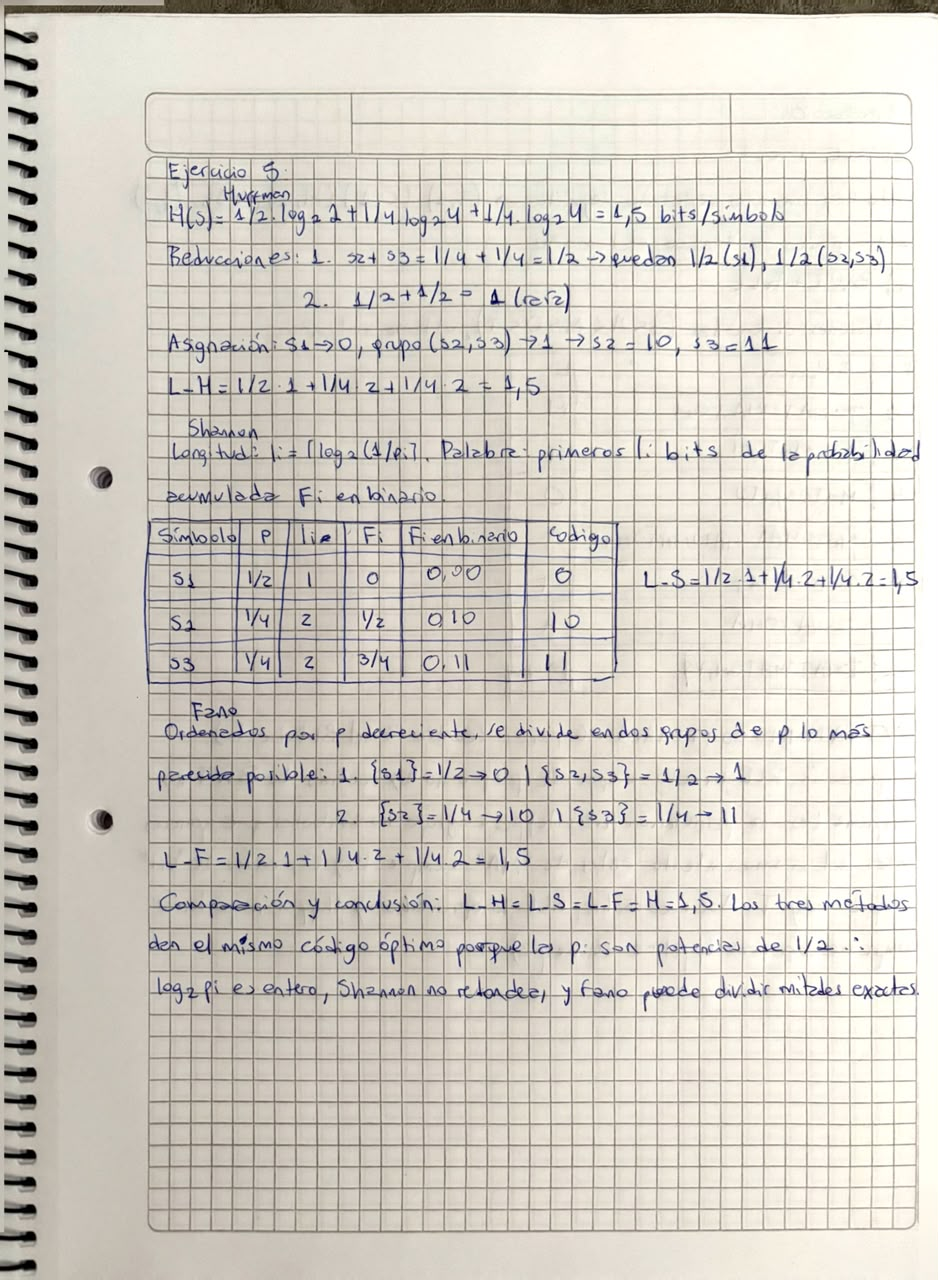 Ejercicio 5.
Huffman
H(s)= 1/2.log₂ 2+1/4 log₂4 +1/4.log₂4 = 1,5 bits/símbolo
Reducciones: 1. s2+ s3=1/4 + 1/4=1/2 → quedan 1/2 (s1), 1/2 (s2,s3)
2. 1/2+1/2= 1 (raíz)
Asignación: s1→0, grupo (s2,s3) →1 → s2 = 10, s3=11
L_H=1/2.1+1/4 2+1/4.2 = 1,5
Shannon
Longitud: li= ⌈log₂(1/pi⌉. Palabra: primeros li bits de la probabilidad
acumulada Fi en binario.
Símbolo P li Fi Fi en binario Código
S1 1/2 1 0 0,00 0 L_S=1/2.1+1/4.2+1/4.2=1,5
S2 1/4 2 1/2 0,10 10
S3 1/4 2 3/4 0,11 11
Fano
Ordenados por p decreciente, se divide en dos grupos de p lo más
parecido posible: 1. {s1}=1/2→0 | {s2,s3} = 1/2 → 1
2. {s2}=1/4 →10 | {s3} = 1/4 → 11
L_F=1/2.1+1/4.2 + 1/4.2 = 1,5
Comparación y conclusión: L_H=L_S=L_F=H=1,5. Los tres métodos
dan el mismo código óptimo porque las pi son potencias de 1/2 ∴
log₂pi es entero, Shannon no redondea, y Fano puede dividir mitades exactas.